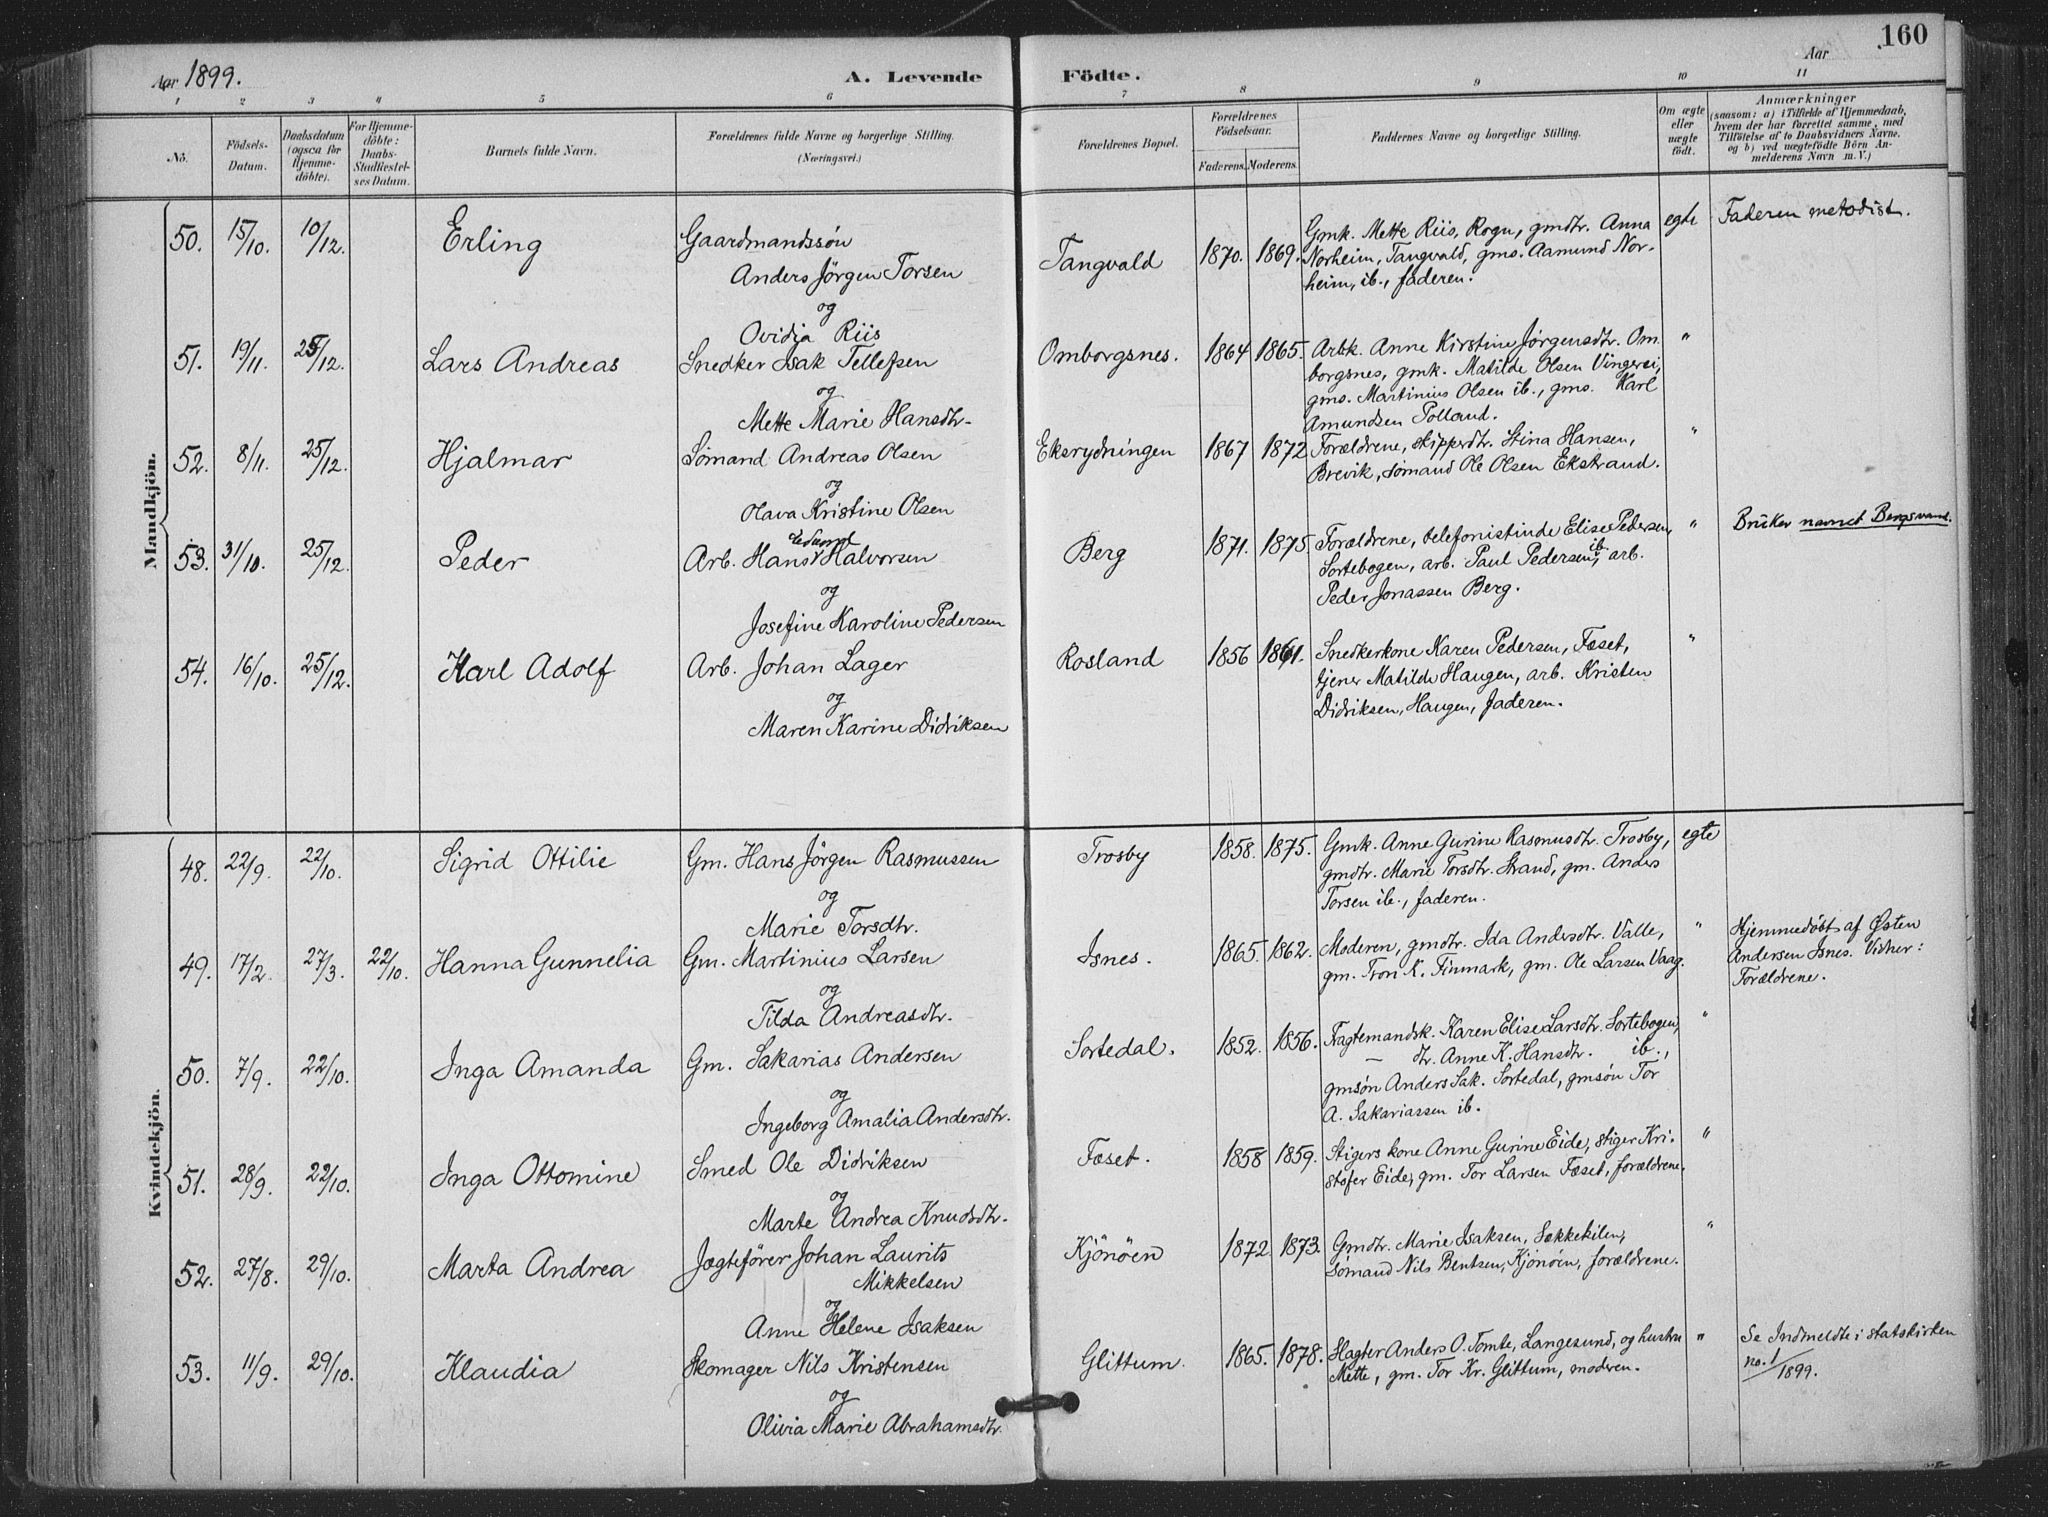 Aar 1899.
A. Levende Födte.
Aar
160
1 2 3 4 5 6 7 8 9 10 11
No.
Födsels-Datum.
Daabsdatum (ogsaa for Hjemme-döbte).
For Hjemme-döbte: Daabs-Stadfæstel-ses Datum.
Barnets fulde Navn.
Forældrenes fulde Navne og borgerlige Stilling.
(Næringsvei.)
Forældrenes Bopæl.
Forældrenes Födselsaar.
Faderens. Moderens.
Faddernes Navne og borgerlige Stilling.
Om ægte eller uægte födt.
Anmærkninger
(saasom: a) i Tilfælde af Hjemmedaab,
hvem der har forrettet samme, med
Tilföielse af to Daabsvidners Navne,
og b) ved uægtefödte Börn An-
melderens Navn m. V.)
Mandkjön.
50. 15/10. 10/12. Erling
Gaardmandssön
Anders Jörgen Torsen
og
Ovidja Riis
Tangvald 1870. 1869.
Gmk. Mette Riis, Rogn, gmdtr. Anna
Norheim, Tangvald, gms. Aamund Nor-
heim, ib., faderen.
egte
Faderen metodist.
51. 19/11. 25/12. Lars Andreas
Snedker Isak Tellefsen
og
Mette Marie Hansdtr.
Omborgsnes. 1864 1865.
Arbk. Anne Kirstine Jørgensdtr. Om-
borgsnes, gmk. Matilde Olsen Vingerei,
gms. Martinius Olsen ib., gms. Karl
Amundsen Polland.
"
52. 8/11. 25/12. Hjalmar
Sömand Andreas Olsen
og
Olava Kristine Olsen
Eksrydningen 1867 1872
Forældrene, skipperdtr. Stina Hansen,
Brevik, sömand Ole Olsen Ekstrand.
"
53. 31/10. 25/12. Peder
Arb. Hans Edvard Halvorsen
og
Josefine Karoline Pedersen
Berg 1871. 1875.
Forældrene, telefonistinde Elise Pedersen,
Sortebogen, arb. Paul Pedersen ib., arb.
Peder Jonassen Berg.
"
Brüker navnet Bergsvand.
54. 16/10. 25/12. Karl Adolf
Arb. Johan Lager
og
Maren Karine Didriksen
Rosland 1856 1861.
Snedkerkone Karen Pedersen, Fæset,
tjener Matilde Haugen, arb. Kristen
Didriksen, Haugen, faderen.
"
Kvindekjön.
48. 22/9. 22/10. Sigrid Ottilie
Gm. Hans Jörgen Rasmussen
og
Marie Torsdtr.
Trosby 1858. 1875.
Gmk. Anne Gurine Rasmusdtr. Trosby,
gmdtr. Marie Torsdtr. Strand, gm. Anders
Torsen ib., faderen.
egte
49. 17/2. 27/3. 22/10. Hanna Gunnelia
Gm. Martinius Larsen
og
Tilda Andreasdtr.
Isnes. 1865. 1862.
Moderen, gmdtr. Ida Andersdtr. Valle,
gm. Tron K. Finmark, gm. Ole Larsen Vaag.
"
Hjemmedöbt af Østen
Andersen Isnes. Vidner:
Forældrene.
50. 7/9. 22/10. Inga Amanda
Gm. Sakarias Andersen
og
Ingeborg Amalia Andersdtr.
Sortedal. 1852. 1856.
Fragtemandsk. Karen Elise Larsdtr. Sortebogen,
— dtr. Anne K. Hansdtr. ib.,
gmsön Anders Sak. Sortedal, gmsön Tor
A. Sakariassen ib.
"
51. 28/9. 22/10. Inga Ottomine
Smed Ole Didriksen
og
Marte Andrea Knudsdtr.
Fæset. 1858 1859.
Stigers kone Anne Gurine Eide, stiger Kri-
stofer Eide, gm. Tor Larsen Fæset, forældrene.
"
52. 27/8. 29/10. Marta Andrea
Jægtefører Johan Laurits
Mikkelsen
og
Anne Helene Isaksen
Kjönöen 1872. 1873.
Gmdtr. Marie Isaksen, Sækkekilen,
Sömand Nils Bentsen, Kjönöen, forældrene.
"
53. 11/9. 29/10. Klaudia
Skomager Nils Kristensen
og
Olivia Marie Abrahamsdtr.
Glittum. 1865. 1878.
Hagter Anders O. Tomte, Langesund, og hustru
Mette, gm. Tor Kr. Glittum, modren.
"
Se Indmeldte i statskirken
no. 1/1899.